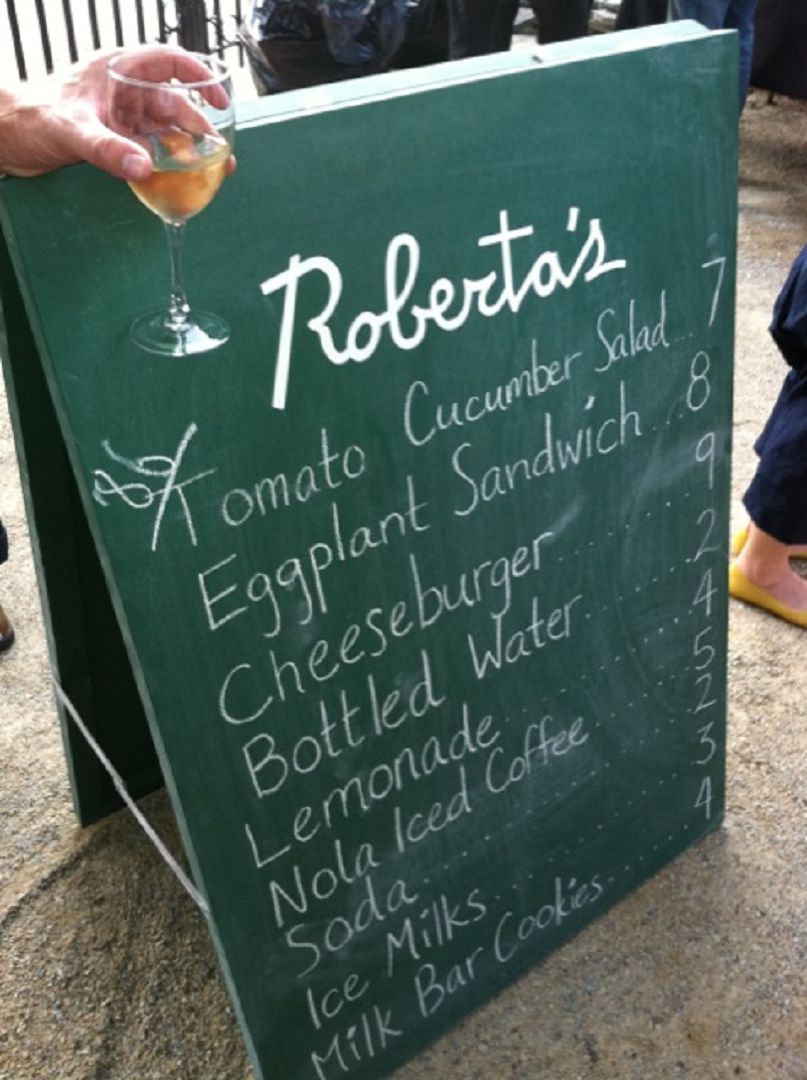 Roberta's
Tomato Cucumber Salad... 7
Eggplant Sandwich... 8
Cheeseburger.......... 9
Bottled Water.......... 2
Lemonade.......... 4
Nola Iced Coffee 5
Soda.......... 2
Ice Milks.......... 3
Milk Bar Cookies....... 4